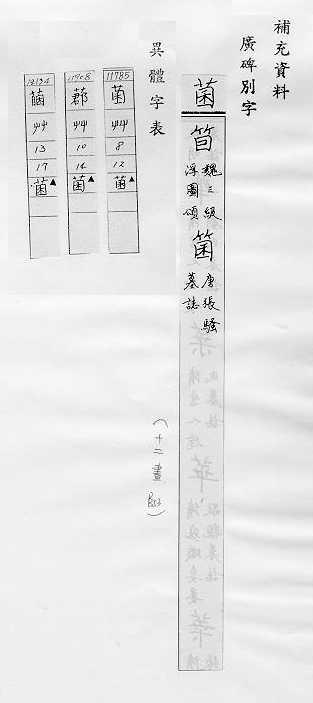 補充資料
廣碑別字
菌
魏三級
浮圖頌
箘
唐張騷
墓誌
(十二畫
異體字表
11785
菌
艸
8
12
菌▲
11908
艸
10
14
菌▲
艸
13
17
菌▲